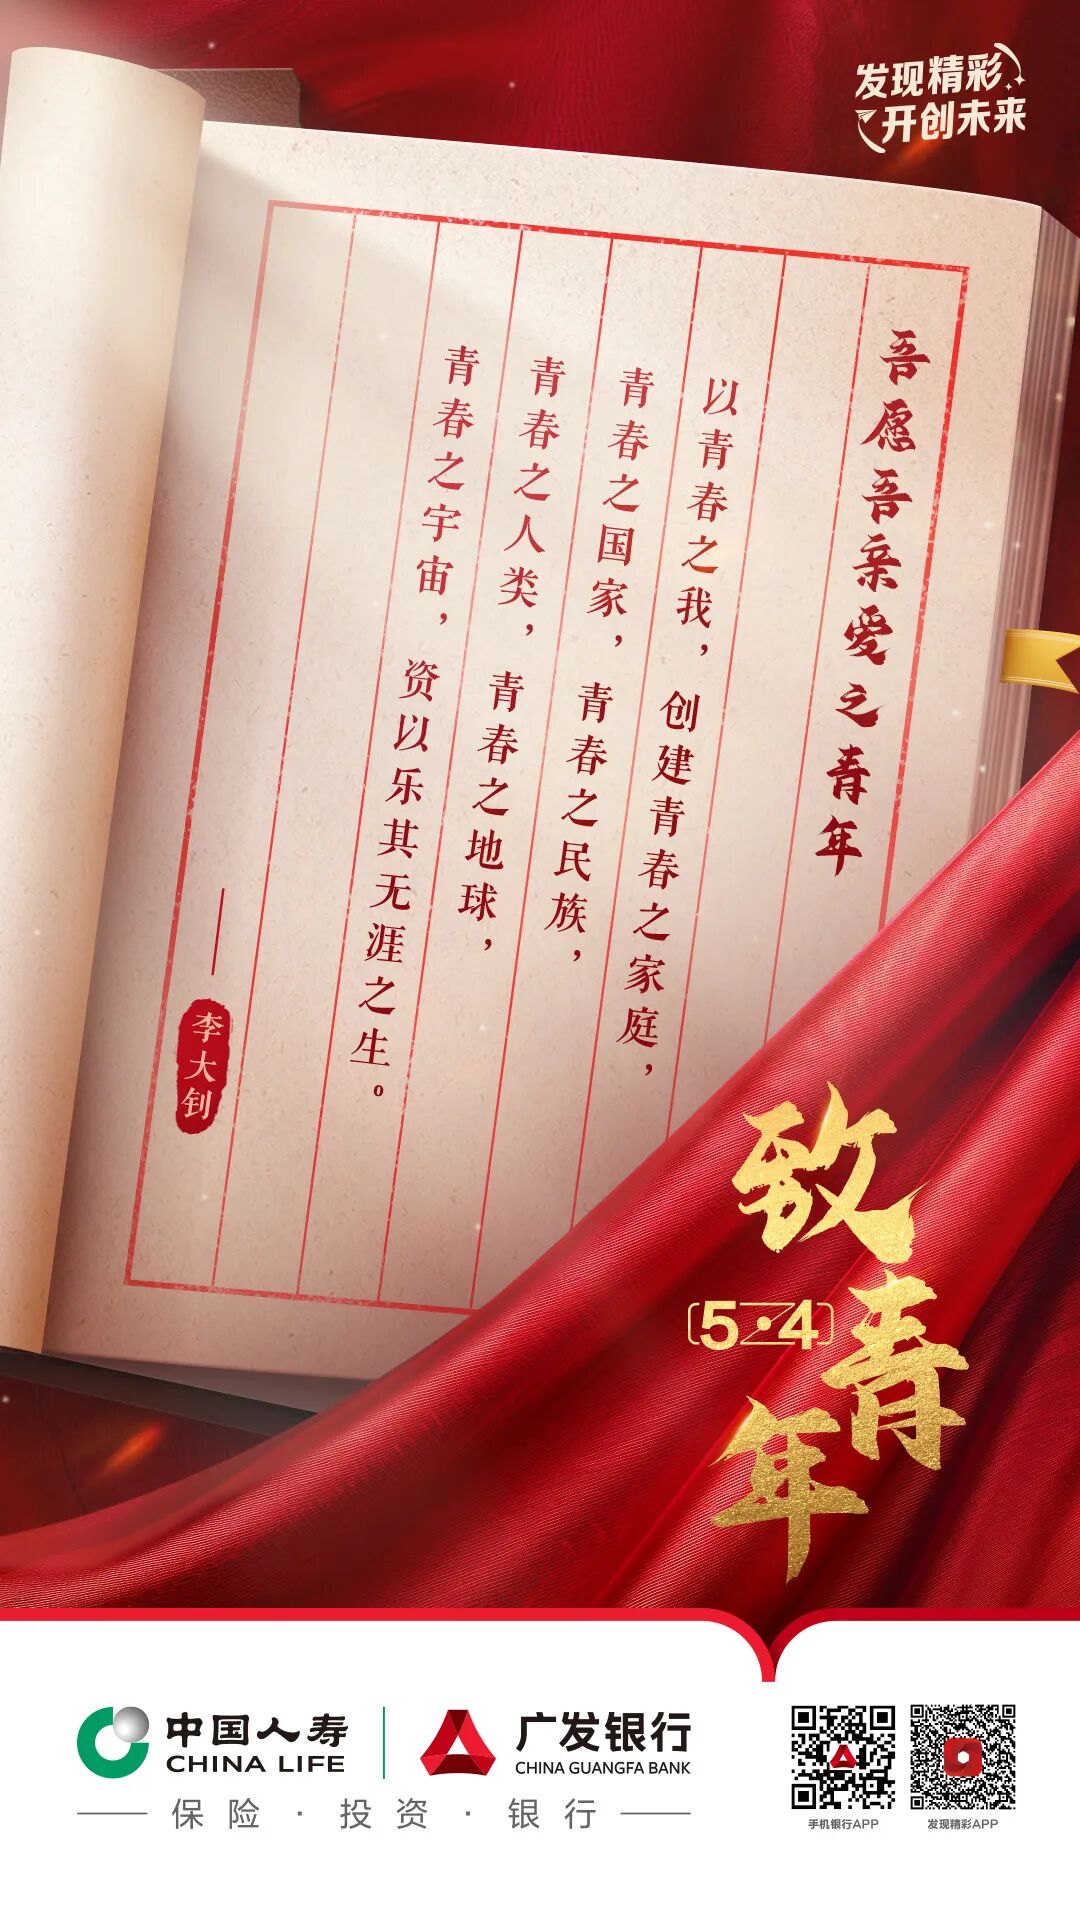 发现精彩
开创未来
吾愿吾亲爱之青年
以青春之我，创建青春之家庭，
青春之国家，青春之民族，
青春之人类，青春之地球，
青春之宇宙，资以乐其无涯之生。
——李大钊
致青年
5·4
中国人寿
CHINA LIFE
广发银行
CHINA GUANGFA BANK
保险·投资·银行
手机银行APP
发现精彩APP